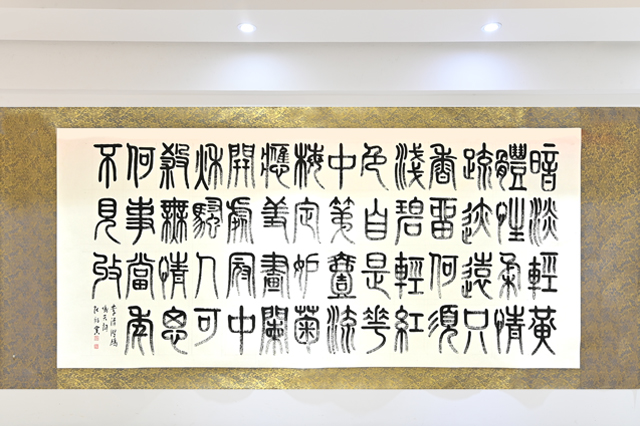 暗淡輕黃
體性柔情
疏迹遠只
香留何須
淺碧輕紅
色自是花
中第壹流
梅定妒菊
應羞畫闌
開處冠中
秋騷人可
煞無情思
何事當年
不見收
李清照鷓
鴣天